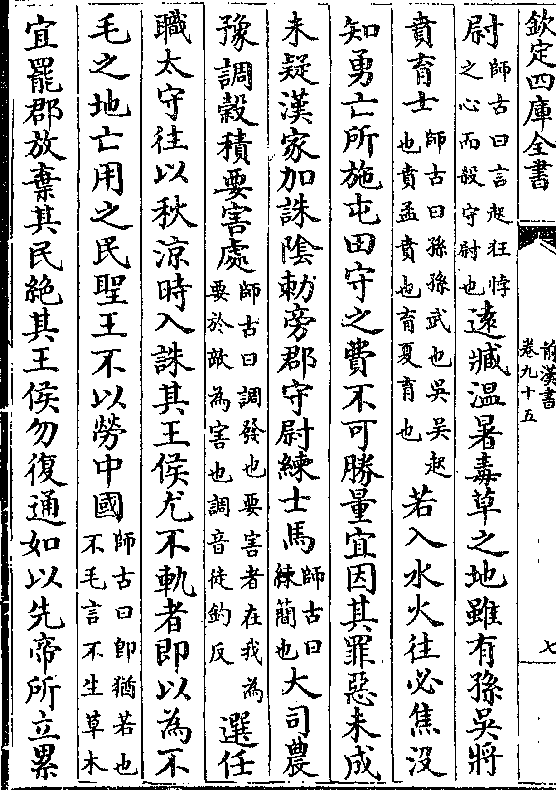 欽定四庫全書
前漢書
卷九十五
七
尉師古曰言起狂悖之心而殺守尉也逺臧溫暑毒草之地雖有孫吳將
賁育士師古曰孫孫武也吳吳起也賁孟賁也育夏育也若入水火往必焦没
知勇亡所施屯田守之費不可勝量宜因其罪惡未成
未疑漢家加誅隂勅旁郡守尉練士馬師古曰練簡也大司農
豫調穀積要害處師古曰調發也要害者在我為要於敵為害也調音徒釣反選任
職太守往以秋涼時入誅其王侯尤不軌者即以為不
毛之地亡用之民聖王不以勞中國師古曰即猶若也不毛言不生草木
宜罷郡放棄其民絶其王侯勿復通如以先帝所立累